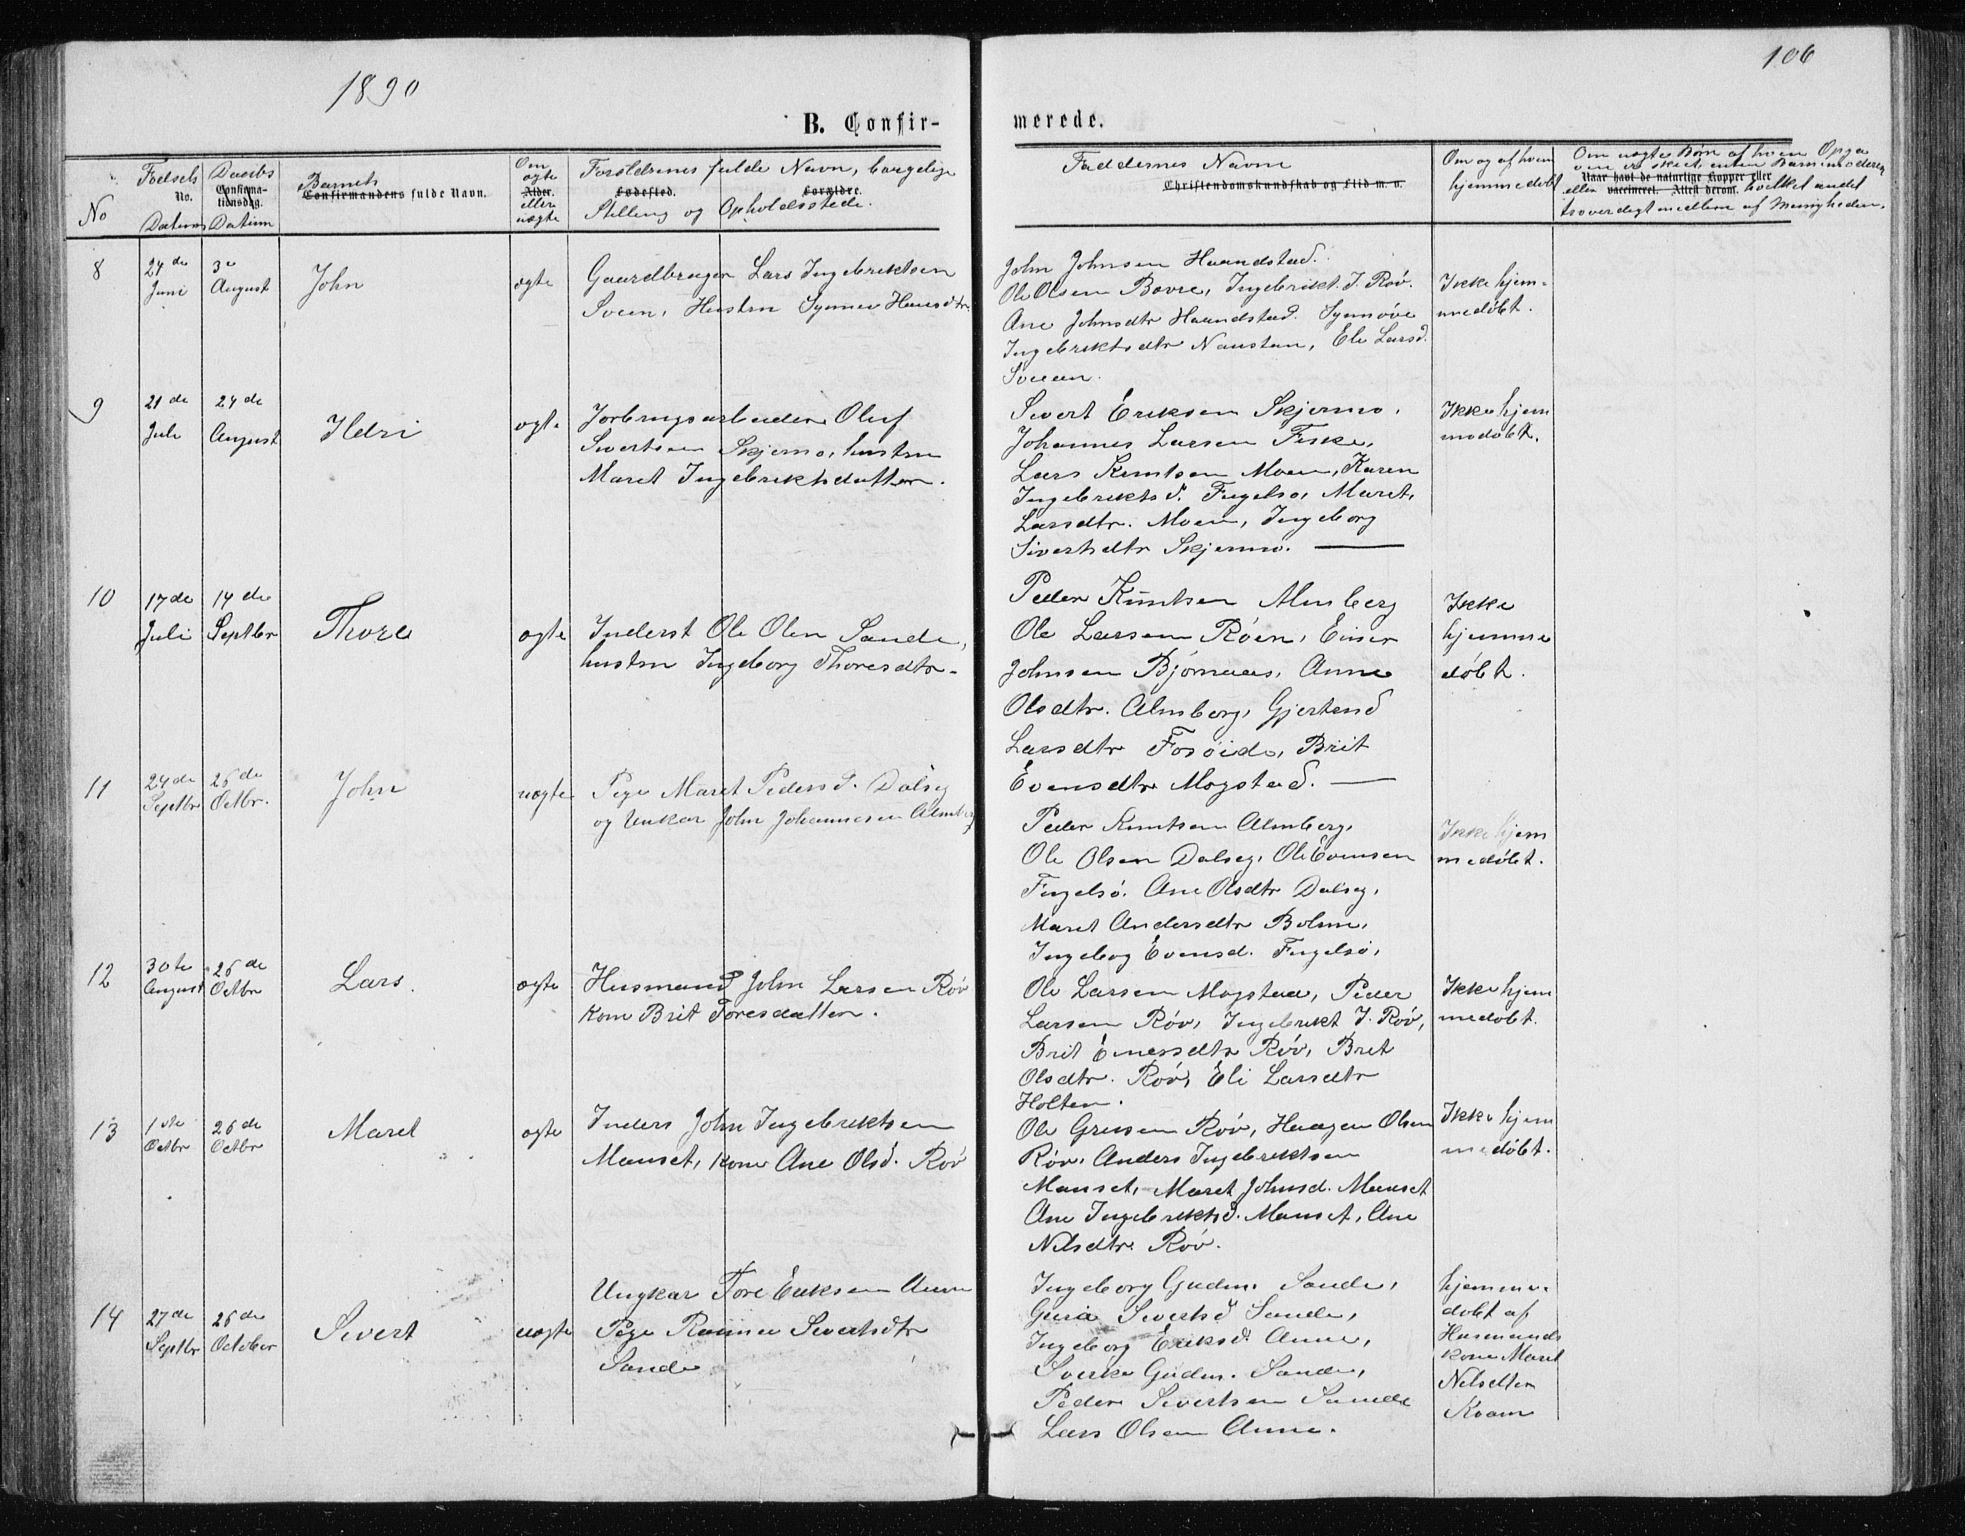 1890
106
B. Confir-
merede.
No
Fødsels
No.
Datum
Daabs
Confirma-
tionsdag.
Datum
Barnets
Confirmandens fulde Navn.
Om
ægte
Alder.
eller
uægte
Forældrenes fulde Navn, borgelige
Fødested. Forældre.
Stilling og Opholdsstede.
Faddernes Navne
Christendomskundskab og Flid m. v.
Om og af hvem
hjemmedøbt
Om uægte Børn af hvem Opga
ven er skeet, enten Barnemoderen
Naar havt de naturlige Kopper eller
eller vaccineret. Attest derom. hvilket andet
troverdigt medlem af Menigheden.
8
24de
Juni
3e
August
John
ægte
Gaardbruger Lars Ingebriktsen
Sveen, Hustru Synnev Hansdtr.
John Johnsen Haandstad.
Ole Olsen Bovre, Ingebrikt. J. Røv.
Ane Johnsdtr Haandstad. Synnøve
Ingebriktsdtr Naustan, Eli Larsd.
Sveen.
Ikke hjem-
medøbt.
9
21de
Juli
24de
August
Ildri
ægte
Jorbrugsarbeider Oluf
Sivertsen Skjermo, hustru
Maret Ingebriktsdatter.
Sivert Eriksen Skjermo,
Johannes Larsen Fiske,
Lars Knutsen Moen, Karen
Ingebriktsd. Fugelsø, Maret,
Larsdtr. Moen, Ingeborg
Siverts​dtr Skjermo.
Ikke hjem
medøbt.
10
17de
Juli
14de
Septbr
Thore
ægte
Inderst Ole Olsn Sande,
hustru Ingeborg Thoresdtr.
Peder Knutsen Almberg
Ole Larsen Røen, Einer
Johnsen Bjørnaas, Anne
Olsdtr. Almberg, Gjertrud
Larsdtr Fosøide, Brit
Evensdtr Mogstad.
Ikke
hjemme
døbt.
11
24de
Septbr
26de
Octbr.
John
uægte
Pige Maret Pedersd. Dalseg
og Unkar John Johannesen Almberg
Peder Knutsen Almberg,
Ole Olsen Dalseg, Ole Evensen
Fugelsø, Ane Olsdtr Dalseg,
Maret Andersdtr Bolme,
Ingeborg Evensd. Fugelsø,
Ikke hjem
medøbt.
12
30te
August
26de
Octbr
Lars.
ægte
Husmand John Larsen Røv
kone Brit Toresdatter.
Ole Larsen Mogstad, Peder
Larsen Røv, Ingebrikt J. Røv,
Brit Einersdtr Røv, Bret
Olsdtr. Røv, Eli Larsdtr
Holten.
Ikke hjem
medøbt.
13
1ste
Octbr
26de
Octbr
Maret
ægte
Inders John Ingebriktsen
Manset, kone Ane Olsd. Røv
Ole Gresen Røv, Haagen Olsen
Røv, Anders Ingebriktsen
Manset, Maret Johnsd. Manset
Ane Ingebriktsd. Manset, Ane
Nilsdtr Røv.
Ikke hjem
medøbt.
14
27de
Septbr
26de
October
Sivert
uægte
Ungkar Tore Eriksen Aune
Pige Sivertsdtr
Sande
Ingeborg Gudm. Sande,
Guria Sivertsd Sande,
Ingeborg Eriksd. Aune,
Sverke Gudm. Sande,
Peder Sivertsen Sande
Lars Olsen Aune.
hjemme-
døbt af
Husmands
kone Maret
Nilsdter
Kvam